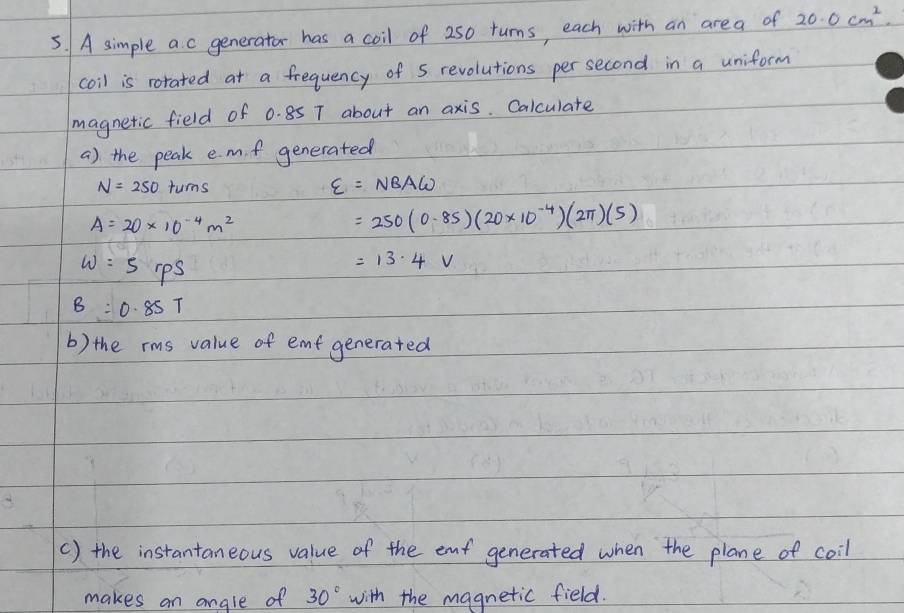 5. A simple a.c generator has a coil of 250 turns, each with an area of 20.0 cm².
coil is rotated at a frequency of 5 revolutions per second in a uniform
magnetic field of 0.85 T about an axis. Calculate
a) the peak e.m.f generated
N = 250 turns ε = NBAω
A = 20 × 10⁻⁴ m² = 250 (0.85)(20×10⁻⁴)(2π)(5)
ω = 5 rps = 13.4 V
B = 0.85 T
b) the rms value of emf generated
c) the instantaneous value of the emf generated when the plane of coil
makes an angle of 30° with the magnetic field.